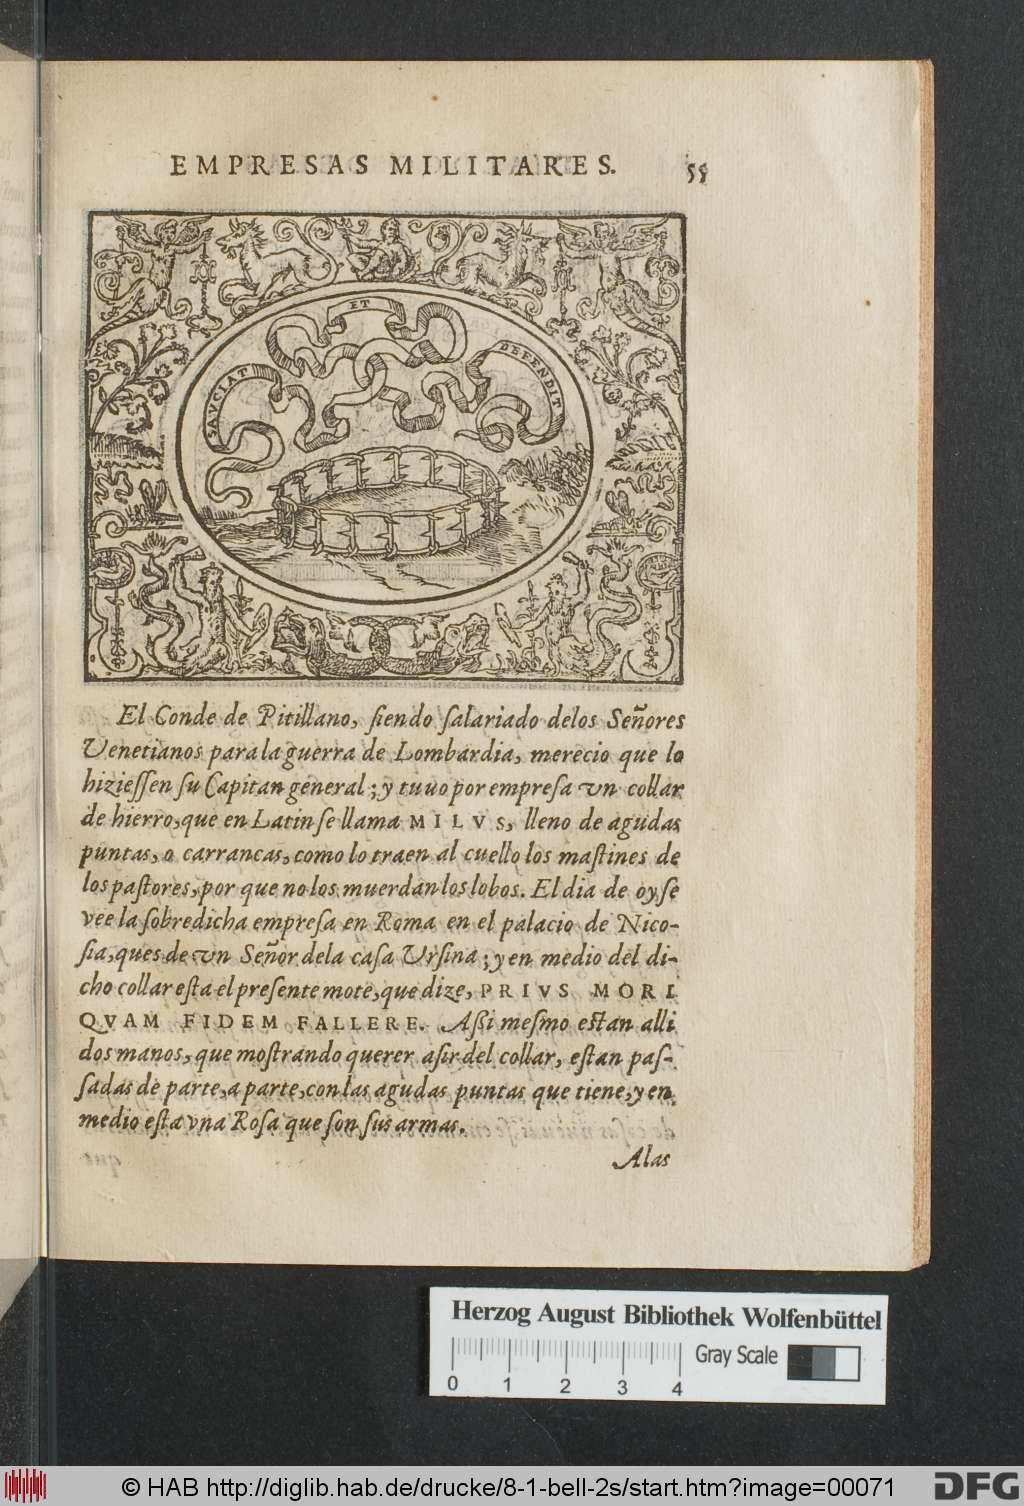 EMPRESAS MILITARES. 55
SAVCIAT
ET
DEFENDIT
El Conde de Pitillano, siendo salariado delos Señores
Venetianos para la guerra de Lombardia, merecio que lo
hiziessen su Capitan general; y tuuo por empresa vn collar
de hierro, que en Latin se llama MILVS, lleno de agudas
puntas, o carrancas, como lo traen al cuello los mastines de
los pastores, por que no los muerdan los lobos. El dia de oy se
vee la sobredicha empresa en Roma en el palacio de Nico-
sia, ques de vn Señor dela casa Vrsina; y en medio del di-
cho collar esta el presente mote, que dize, PRIVS MORI
QVAM FIDEM FALLERE. Aßi mesmo estan alli
dos manos, que mostrando querer asir del collar, estan pas-
sadas de parte, a parte, con las agudas puntas que tiene, y en
medio esta vna Rosa que son sus armas.
Alas
Herzog August Bibliothek Wolfenbüttel
Gray Scale
0 1 2 3 4
© HAB http://diglib.hab.de/drucke/8-1-bell-2s/start.htm?image=00071
DFG